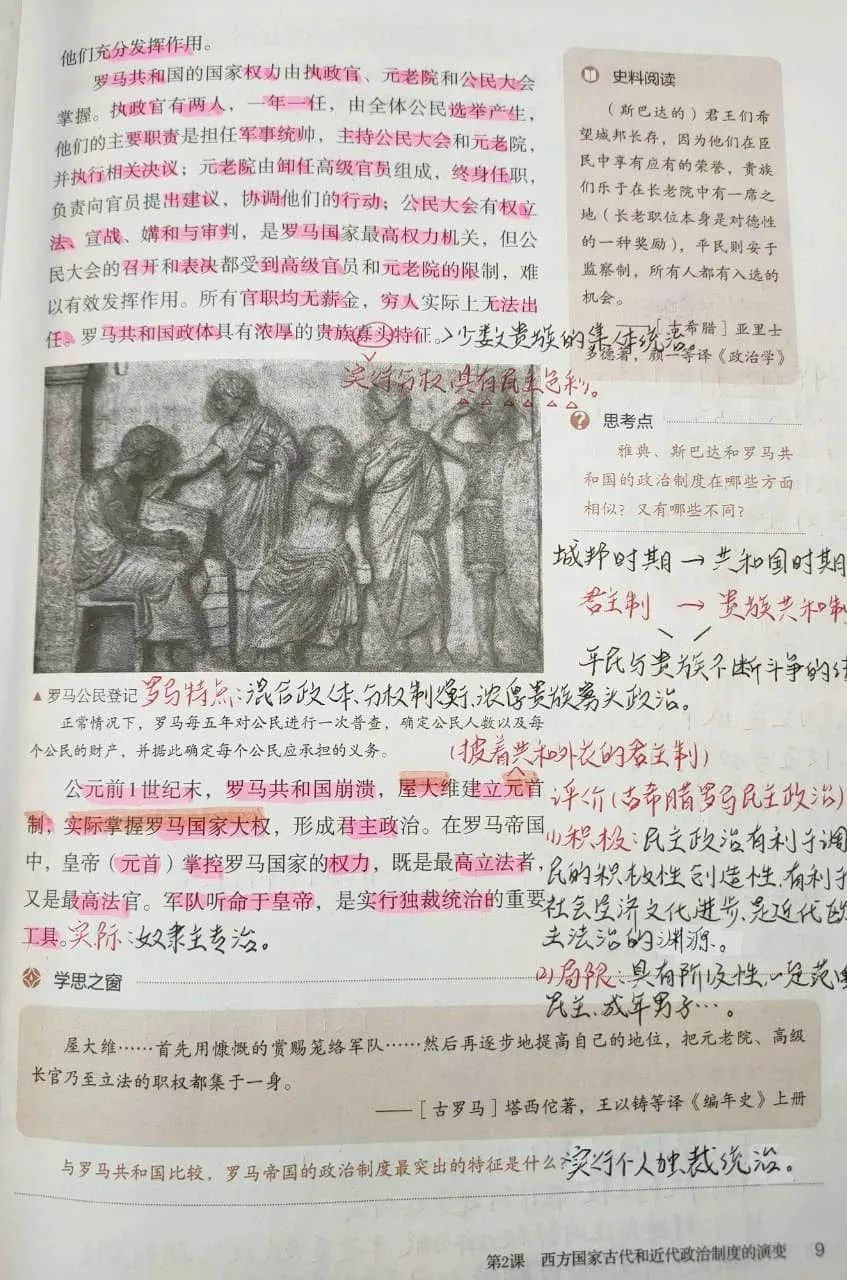 他们充分发挥作用。
罗马共和国的国家权力由执政官、元老院和公民大会
掌握。执政官有两人，一年一任，由全体公民选举产生，
他们的主要职责是担任军事统帅，主持公民大会和元老院，
并执行相关决议；元老院由卸任高级官员组成，终身任职，
负责向官员提出建议，协调他们的行动；公民大会有权立
法、宣战、媾和与审判，是罗马国家最高权力机关，但公
民大会的召开和表决都受到高级官员和元老院的限制，难
以有效发挥作用。所有官职均无薪金，穷人实际上无法出
任。罗马共和国政体具有浓厚的贵族寡头特征。
少数贵族的集体统治。
实行分权 具有民主色彩。
史料阅读
（斯巴达的）君王们希
望城邦长存，因为他们在臣
民中享有应有的荣誉，贵族
们乐于在长老院中有一席之
地（长老职位本身是对德性
的一种奖励），平民则安于
监察制，所有人都有入选的
机会。
——［古希腊］亚里士
多德著，颜一等译《政治学》
思考点
雅典、斯巴达和罗马共
和国的政治制度在哪些方面
相似？又有哪些不同？
城邦时期→共和国时期
君主制 → 贵族共和制
平民与贵族不断斗争的
▲罗马公民登记
罗马特点：混合政体、分权制衡、浓厚贵族寡头政治。
正常情况下，罗马每五年对公民进行一次普查，确定公民人数以及每
个公民的财产，并据此确定每个公民应承担的义务。
（披着共和外衣的君主制）
公元前1世纪末，罗马共和国崩溃，屋大维建立元首
制，实际掌握罗马国家大权，形成君主政治。在罗马帝国
中，皇帝（元首）掌控罗马国家的权力，既是最高立法者，
又是最高法官。军队听命于皇帝，是实行独裁统治的重要
工具。
实际：奴隶主专治。
评价（古希腊罗马民主政治）
(1)积极：民主政治有利于调
民的积极性创造性，有利于
社会经济文化进步，是近代
主法治的渊源。
(2)局限：具有阶级性，一定范
民主、成年男子…。
学思之窗
屋大维……首先用慷慨的赏赐笼络军队……然后再逐步地提高自己的地位，把元老院、高级
长官乃至立法的职权都集于一身。
——［古罗马］塔西佗著，王以铸等译《编年史》上册
与罗马共和国比较，罗马帝国的政治制度最突出的特征是什么？
实行个人独裁统治。
第2课 西方国家古代和近代政治制度的演变 9